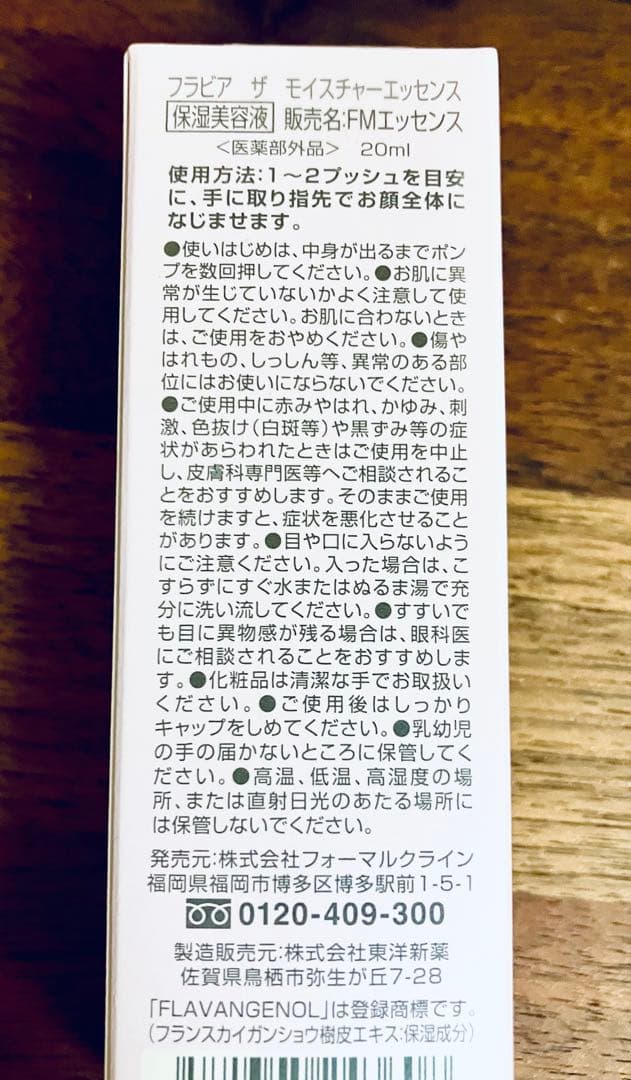 フラビア ザ モイスチャーエッセンス
保湿美容液 販売名:FMエッセンス
<医薬部外品> 20ml
使用方法:1〜2プッシュを目安
に、手に取り指先でお顔全体に
なじませます。
●使いはじめは、中身が出るまでポン
プを数回押してください。●お肌に異
常が生じていないかよく注意して使
用してください。お肌に合わないとき
は、ご使用をおやめください。●傷や
はれもの、しっしん等、異常のある部
位にはお使いにならないでください。
●ご使用中に赤みやはれ、かゆみ、刺
激、色抜け(白斑等)や黒ずみ等の症
状があらわれたときはご使用を中止
し、皮膚科専門医等へご相談されるこ
とをおすすめします。そのままご使用
を続けますと、症状を悪化させること
があります。●目や口に入らないよう
にご注意ください。入った場合は、こ
すらずにすぐ水またはぬるま湯で充
分に洗い流してください。●すすいで
も目に異物感が残る場合は、眼科医
にご相談されることをおすすめしま
す。●化粧品は清潔な手でお取扱い
ください。●ご使用後はしっかり
キャップをしめてください。●乳幼児
の手の届かないところに保管してく
ださい。●高温、低温、高湿度の場
所、または直射日光のあたる場所に
は保管しないでください。
発売元:株式会社フォーマルクライン
福岡県福岡市博多区博多駅前1-5-1
0120-409-300
製造販売元:株式会社東洋新薬
佐賀県鳥栖市弥生が丘7-28
「FLAVANGENOL」は登録商標です。
(フランスカイガンショウ樹皮エキス:保湿成分)